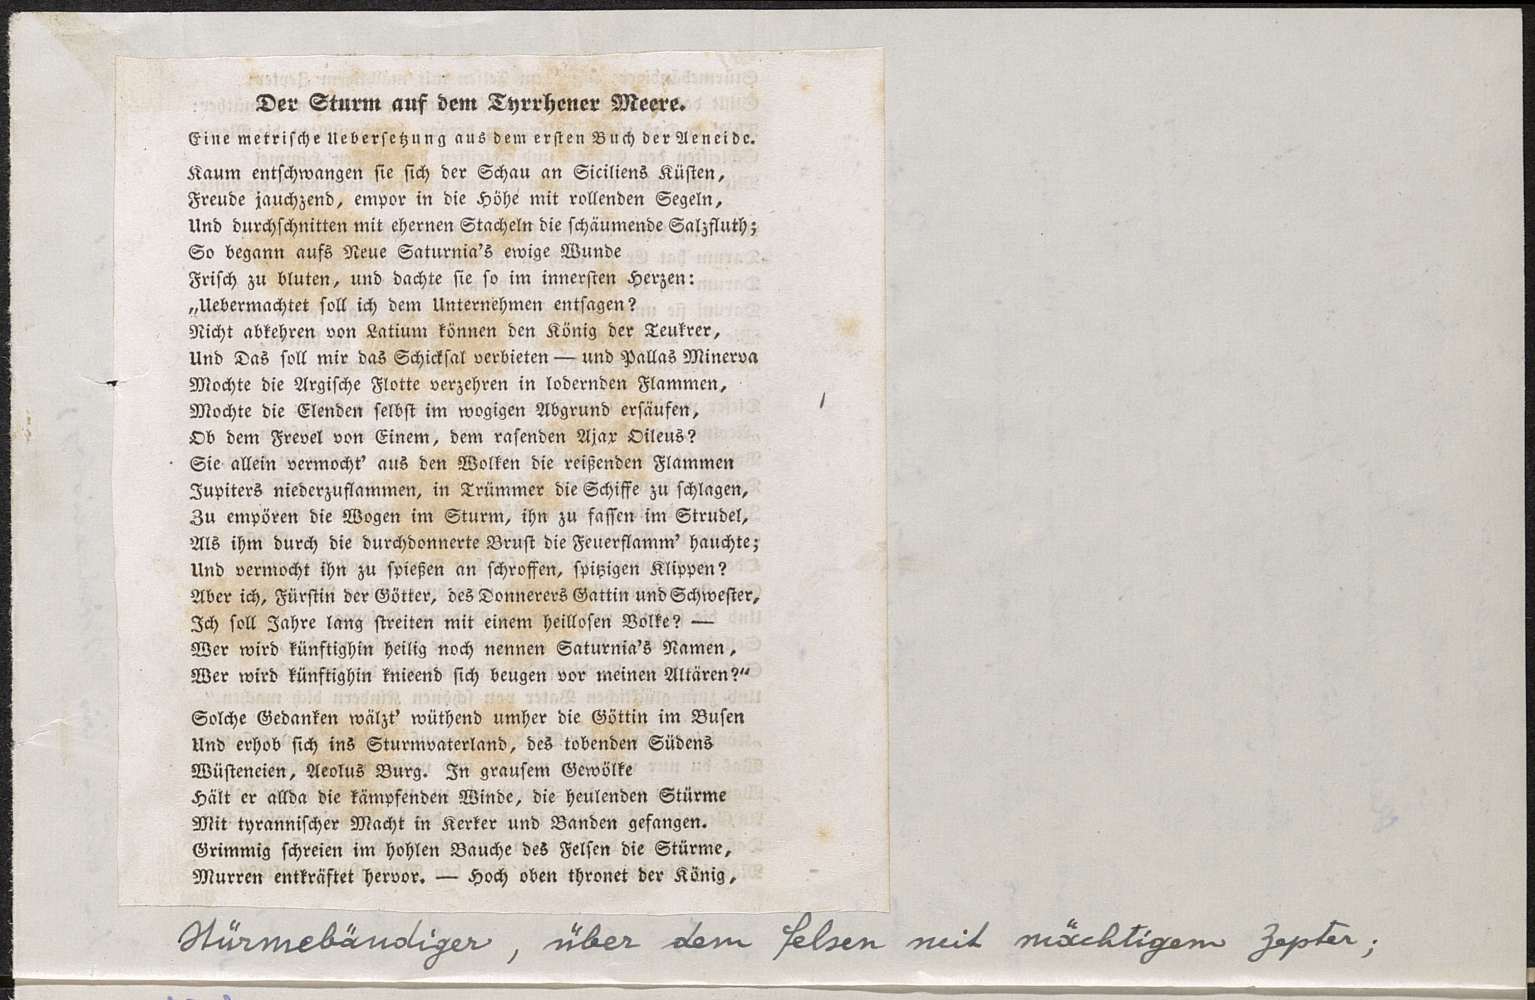 Der Sturm auf dem Tyrrhener Meere.
Eine metrische Uebersetzung aus dem ersten Buch der Aeneide.
Kaum entschwangen sie sich der Schau an Siciliens Küsten,
Freude jauchzend, empor in die Höhe mit rollenden Segeln,
Und durchschnitten mit ehernen Stacheln die schäumende Salzfluth;
So begann aufs Neue Saturnia's ewige Wunde
Frisch zu bluten, und dachte sie so im innersten Herzen:
„Uebermachtet soll ich dem Unternehmen entsagen?
Nicht abkehren von Latium können den König der Teukrer,
Und Das soll mir das Schicksal verbieten — und Pallas Minerva
Mochte die Argische Flotte verzehren in lodernden Flammen,
Mochte die Elenden selbst im wogigen Abgrund ersäufen,
Ob dem Frevel von Einem, dem rasenden Ajax Oileus?
Sie allein vermocht' aus den Wolken die reißenden Flammen
Jupiters niederzuflammen, in Trümmer die Schiffe zu schlagen,
Zu empören die Wogen im Sturm, ihn zu fassen im Strudel,
Als ihm durch die durchdonnerte Brust die Feuerflamm' hauchte;
Und vermocht ihn zu spießen an schroffen, spitzigen Klippen?
Aber ich, Fürstin der Götter, des Donnerers Gattin und Schwester,
Ich soll Jahre lang streiten mit einem heillosen Volke? —
Wer wird künftighin heilig noch nennen Saturnia's Namen,
Wer wird künftighin knieend sich beugen vor meinen Altären?“
Solche Gedanken wälzt' wüthend umher die Göttin im Busen
Und erhob sich ins Sturmvaterland, des tobenden Südens
Wüsteneien, Aeolus Burg. In grausem Gewölke
Hält er allda die kämpfenden Winde, die heulenden Stürme
Mit tyrannischer Macht in Kerker und Banden gefangen.
Grimmig schreien im hohlen Bauche des Felsen die Stürme,
Murren entkräftet hervor. — Hoch oben thronet der König,
Stürmebändiger, über dem Felsen mit mächtigem Zepter;